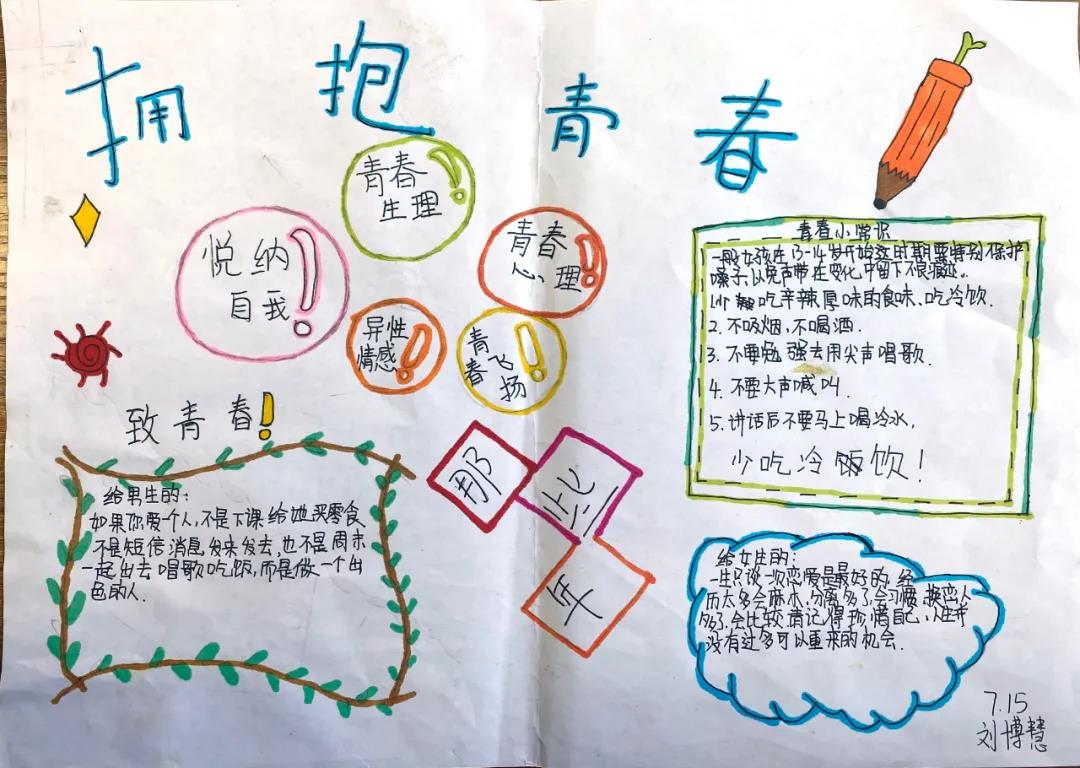 拥抱青春
青春
生理
悦纳
自我
青春
心理
异性
情感
青
春飞
扬
致青春
给男生的:
如果你爱一个人,不是下课给她买零食,
不是短信消息发来发去,也不是周末
一起出去唱歌吃饭,而是做一个出
色的人.
那
些
年
青春小常识
一般女孩在13-14岁开始这时期要特别保护
嗓子,以免声带在变化中留下不良痕迹.
1.少吃辛辣厚味的食味、吃冷饮.
2.不吸烟,不喝酒.
3.不要勉强去用尖声唱歌.
4.不要大声喊叫.
5.讲话后不要马上喝冷水,
少吃冷饮!
给女生的:
一生只谈一次恋爱是最好的,经
历太多会麻木,分离多了会习惯,换恋人
多了,会比较,请记得珍惜自己,人生并
没有过多可以重来的机会.
7.15
刘博慧